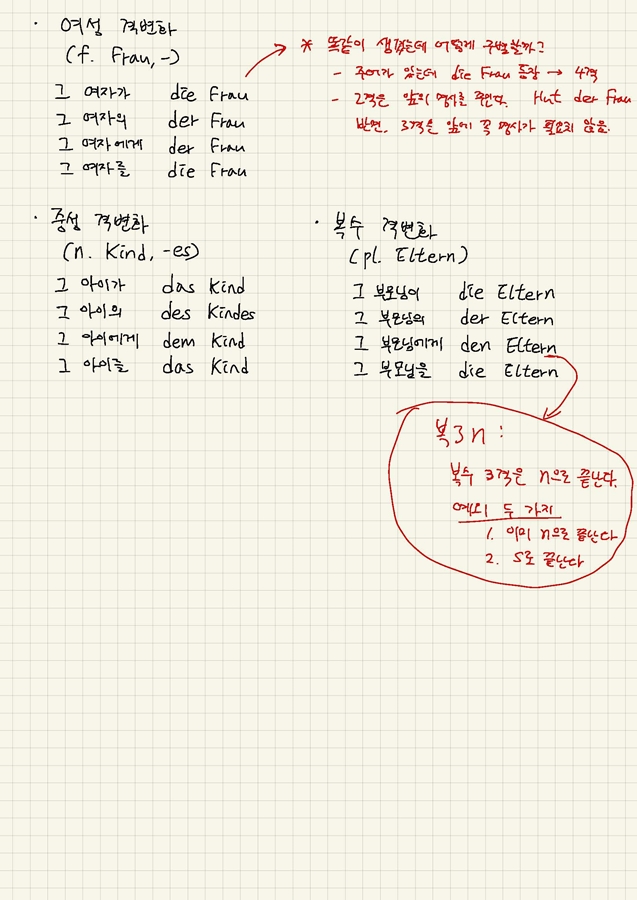 · 여성 격변화
(f. Frau, -)
그 여자가 die Frau
그 여자의 der Frau
그 여자에게 der Frau
그 여자를 die Frau
* 똑같이 생겼는데 어떻게 구별할까?
- 주어가 있는데 die Frau 등장 → 4격
- 2격은 앞의 명사를 꾸민다. Hut der Frau
반면, 3격은 앞에 꼭 명사가 필요치 않음.
· 중성 격변화
(n. Kind, -es)
그 아이가 das Kind
그 아이의 des Kindes
그 아이에게 dem Kind
그 아이를 das Kind
· 복수 격변화
(pl. Eltern)
그 부모님이 die Eltern
그 부모님의 der Eltern
그 부모님에게 den Eltern
그 부모님을 die Eltern
복3n :
복수 3격은 n으로 끝난다.
예외 두 가지
1. 이미 n으로 끝난다
2. S로 끝난다